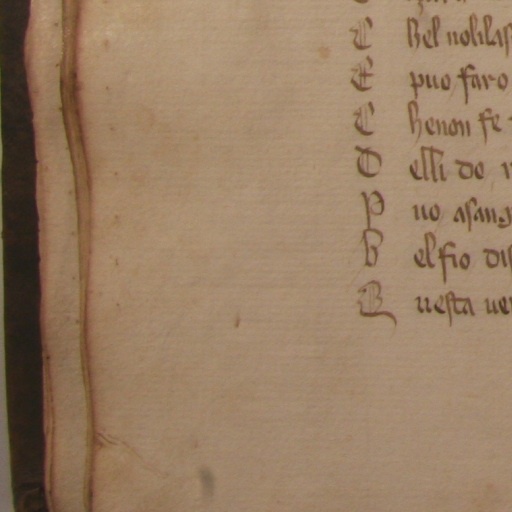 C hel nobilas
E puo faro
C henon fe
D elli de
P uo asang
B el fio dis
Q uesta ue